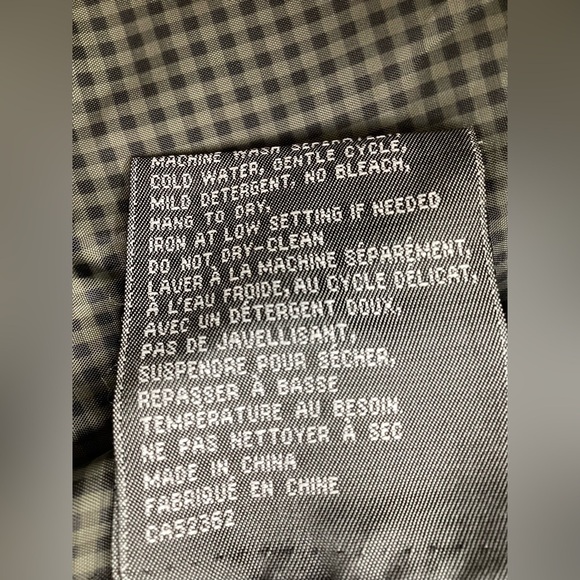 MACHINE WASH SEPARATELY,
COLD WATER, GENTLE CYCLE,
MILD DETERGENT, NO BLEACH,
HANG TO DRY,
IRON AT LOW SETTING IF NEEDED
DO NOT DRY-CLEAN
LAVER À LA MACHINE SÉPARÉMENT,
À L'EAU FROIDE, AU CYCLE DÉLICAT,
AVEC UN DÉTERGENT DOUX,
PAS DE JAVELLISANT,
SUSPENDRE POUR SÉCHER,
REPASSER À BASSE
TEMPÉRATURE AU BESOIN
NE PAS NETTOYER À SEC
MADE IN CHINA
FABRIQUÉ EN CHINE
CA52362